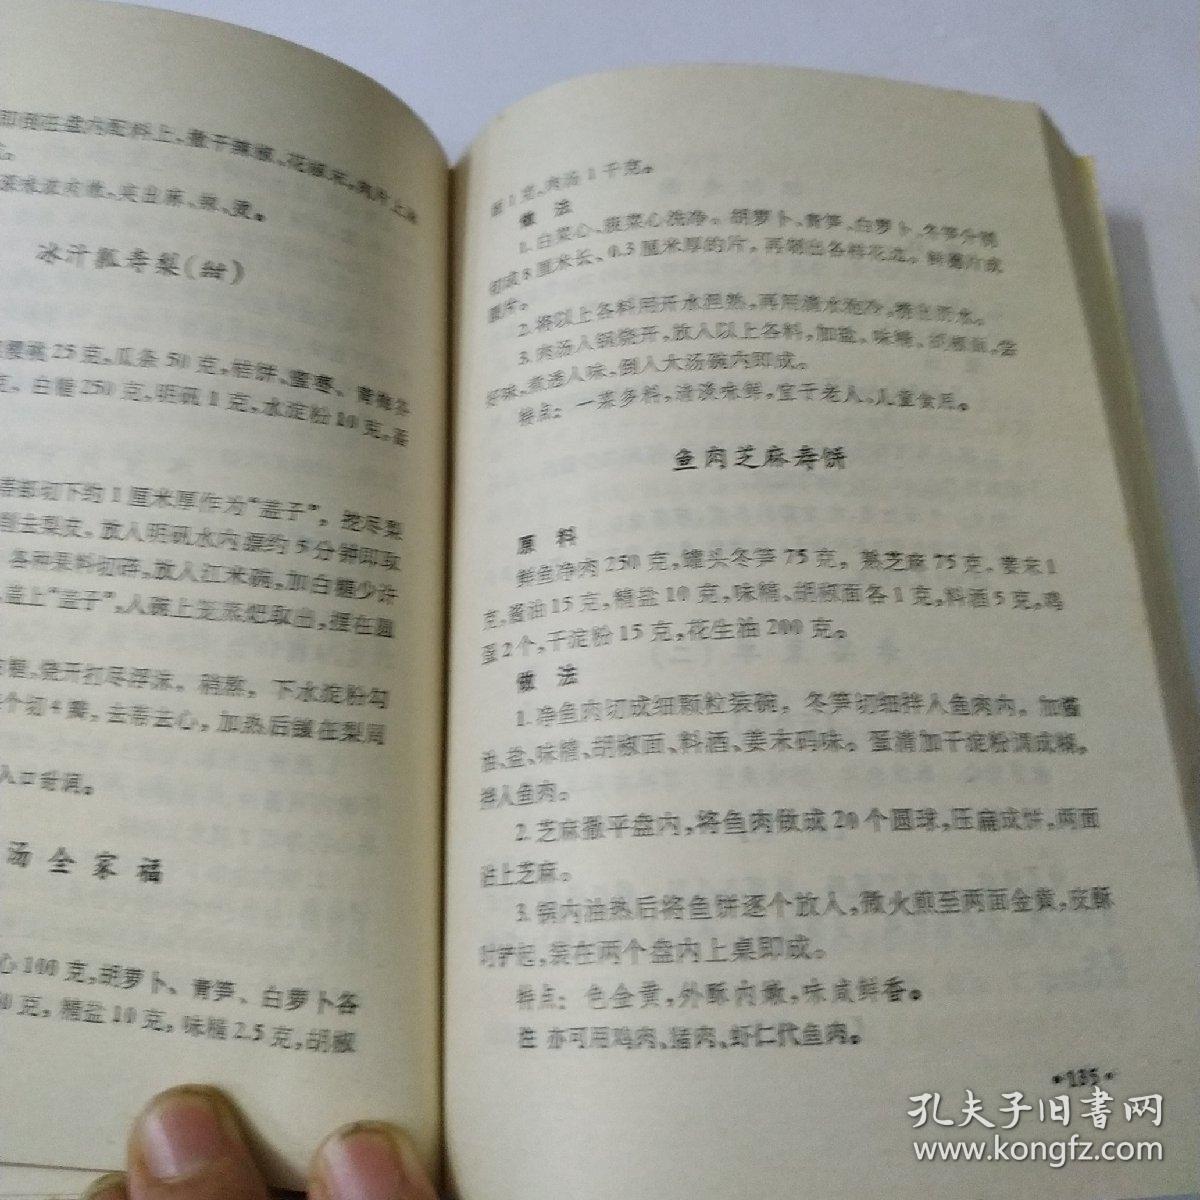 即倒在盘内配料上、撒干辣椒、花椒末,肉片上
冰汁瓤寿梨(甜)
樱桃25克,瓜条50克,桔饼、蜜枣、青梅各
克。白糖250克,明矾1克,水淀粉10克,蛋
蒂部切下约1厘米厚作为“盖子”,挖尽梨
削去梨皮。放入明矾水内漂约5分钟即取
各种果料切碎,放入江米碗,加白糖少许
盖上“盖子”,入碗上笼蒸𤆵取出,摆在圆
糖,烧开打尽浮沫。稍熬,下水淀粉勾
个切4瓣,去蒂去心,加热后镶在梨周
入口甜润。
汤全家福
心100克,胡萝卜、青笋、白萝卜各
0克,精盐10克,味精2.5克,胡椒
面1克,肉汤1千克。
做法
1.白菜心、菠菜心洗净。胡萝卜、青笋、白萝卜、冬笋分别
切成8厘米长、0.3厘米厚的片,再刻出各种花边。鲜蘑片成
圆片。
2.将以上各料用开水担热,再用清水泡冷,挤出剩水。
3.肉汤入锅烧开,放入以上各料,加盐、味精、胡椒面,尝
好味,煮透入味,倒入大汤碗内即成。
特点:一菜多料,清淡味鲜,宜于老人、儿童食用。
鱼肉芝麻寿饼
原料
鲜鱼净肉250克,罐头冬笋75克,熟芝麻75克、姜末1
克,酱油15克,精盐10克,味精、胡椒面各1克,料酒5克,鸡
蛋2个,干淀粉15克,花生油200克。
做法
1.净鱼肉切成细颗粒装碗,冬笋切细拌入鱼肉内,加酱
油、盐、味精、胡椒面、料酒、姜末码味。蛋清加干淀粉调成糊,
拌入鱼肉。
2.芝麻撒平盘内,将鱼肉做成20个圆球,压扁成饼,两面
沾上芝麻。
3.锅内油热后将鱼饼逐个放入,微火煎至两面金黄,皮酥
时铲起,装在两个盘内上桌即成。
特点:色金黄,外酥内嫩,味咸鲜香。
注 亦可用鸡肉、猪肉、虾仁代鱼肉。
·135·
孔夫子旧书网
www.kongfz.com